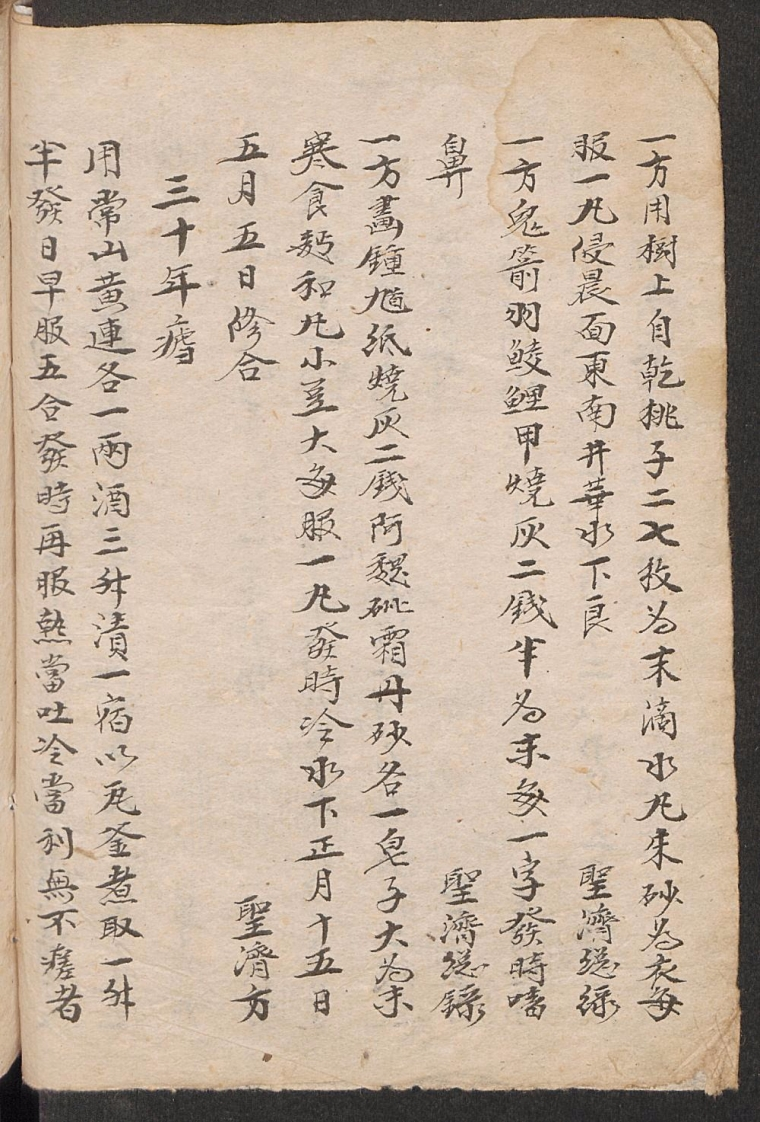 一方用樹上自乾桃子二七枚為末滴水丸朱砂為衣每
服一丸侵晨面東南井華水下良　聖濟総錄
一方鬼箭羽鯪鯉甲燒灰二錢半為末每一字發時㗜
鼻　聖濟総錄
一方畫鍾馗紙燒灰二錢阿魏砒霜丹砂各一皂子大為末
寒食麪和丸小荳大每服一丸發時冷水下正月十五日
五月五日修合　聖濟方
三十年瘧
用常山黃連各一兩酒三升漬一宿以瓦釜煮取一升
半發日早服五合發時再服熱當吐冷當利無不瘥者